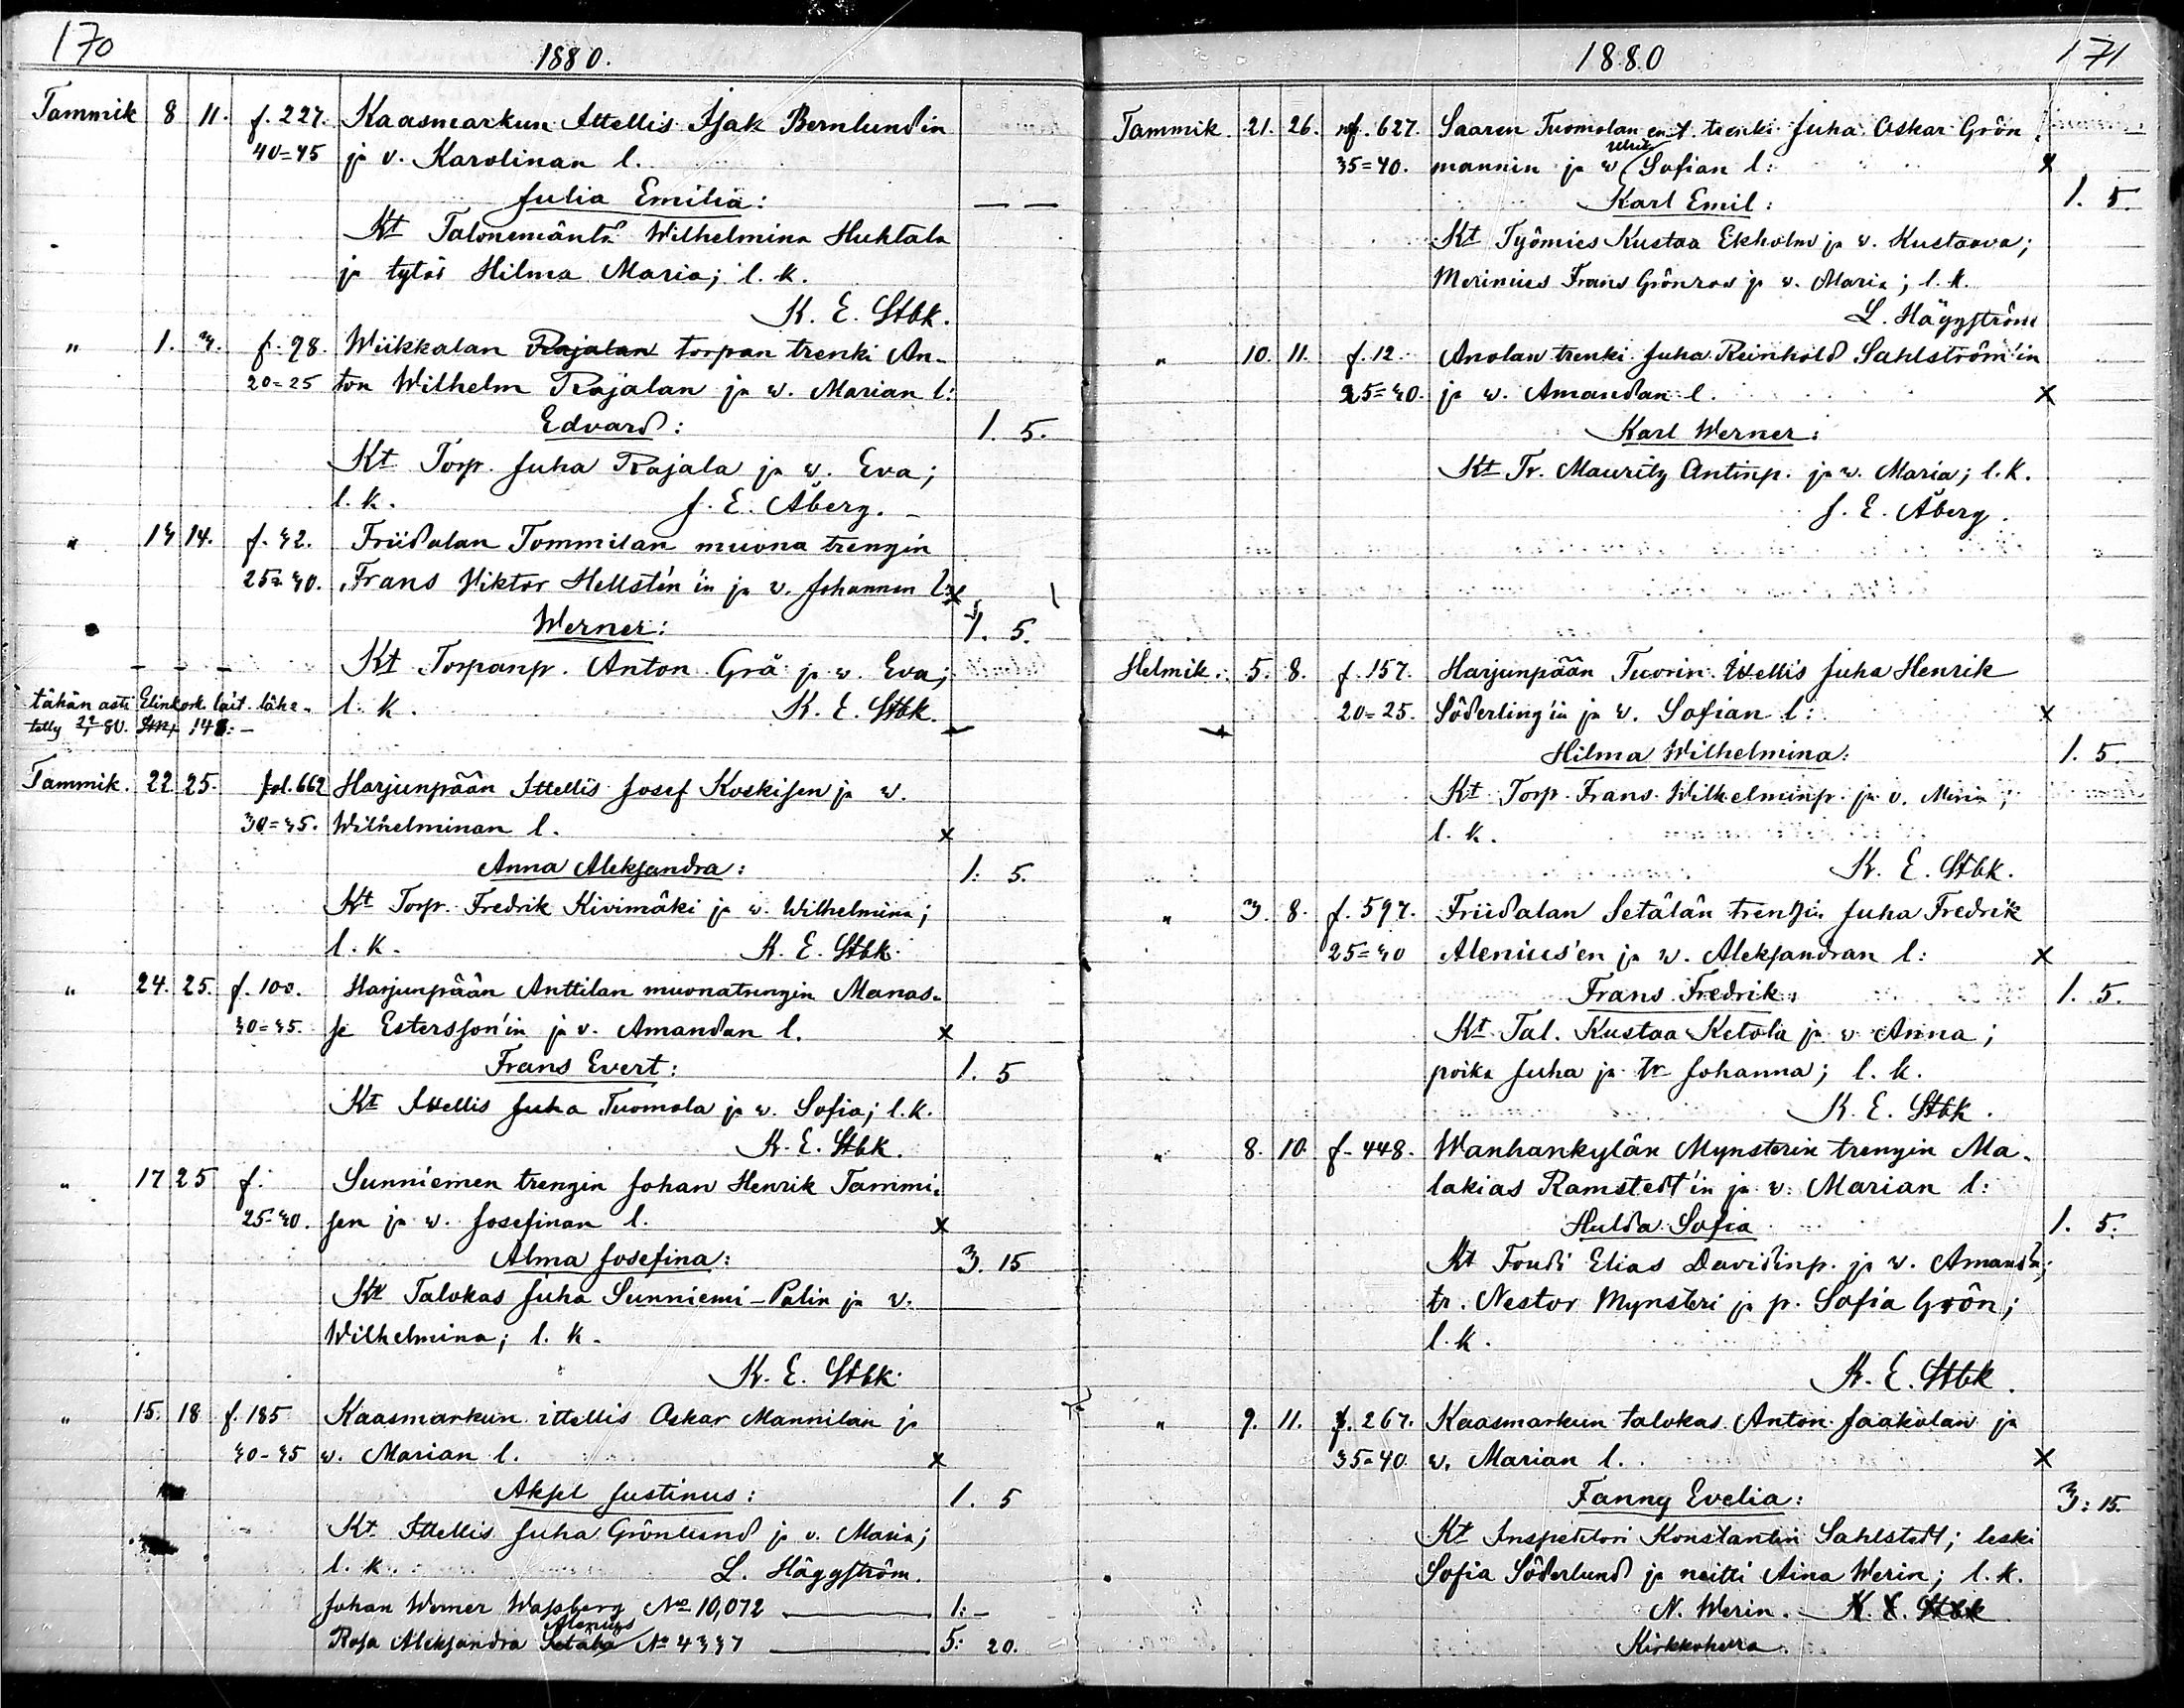 170
1880.
Tammik 8 11. f. 227. Kaasmarkun Ittellis Isak Bernlundin
40=45 ja v. Karolinan l.
Julia Emilia: — —
Kt Talonemäntä Wilhelmina Huhtala
ja tytär Hilma Maria; l. k.
K. E. Stbk.
" 1. 3. f. 98. Wiikkalan Rajalan torpan trenki An-
20=25 ton Wilhelm Rajalan ja w. Marian l:
Edvard: 1. 5.
Kt Torp. Juha Rajala ja w. Eva;
l. k. J. E. Åberg.
" 13 14. f. 32. Friidalan Tommilan muona trengin
25=30. Frans Viktor Hellstén'in ja v. Johannan l: x
Werner: 1. 5.
Kt Torpanp. Anton Grå ja w. Eva;
tähän asti Elinkork. lait. lähe- l. k. K. E. Stbk.
tetty 80.
Tammik. 22 25. fol. 662 Harjunpään Ittellis Josef Koskisen ja w.
30=35. Wilhelminan l. x
Anna Aleksandra: 1. 5.
Kt Torp. Fredrik Kivimäki ja w. Wilhelmina;
l. k. K. E. Stbk.
" 24. 25. f. 100. Harjunpään Anttilan muonatrengin Manas-
30=35. se Estersson'in ja v. Amandan l. x
Frans Evert: 1. 5
Kt Ittellis Juha Tuomola ja w. Sofia; l. k.
K. E. Stbk.
" 17 25 f. Sunniemen trengin Johan Henrik Tammi-
25-30. sen ja w. Josefinan l. x
Alma Josefina: 3. 15
Kt Talokas Juha Sunniemi-Palin ja v.
Wilhelmina; l. k.
K. E. Stbk.
" 15. 18 f. 185 Kaasmarkun ittellis Oskar Mannilan ja
30-35 w. Marian l. x
Aksel Justinus: 1. 5
Kt. Ittellis Juha Grönlund ja v. Maria;
l. k. L. Häggström.
Johan Werner Wassberg No 10,072 — 1: -
Alenius
Rosa Aleksandra Setälä No 4337 — 5: 20.
1880
171
Tammik. 21. 26. nf. 627. Saaren Tuomolan ent. trenki Juha Oskar Grön
Ulrik
35=40. mannin ja w Sofian l: x
Karl Emil: 1. 5.
Kt Työmies Kustaa Ekholm ja w. Kustaava;
Merimies Frans Grönroos ja w. Maria; l. k.
L. Häggström
" 10. 11. f. 12. Anolan trenki Juha Reinhold Sahlström'in
25=30. ja w. Amandan l. x
Karl Werner:
Kt Tr. Mauritz Antinp. ja w. Maria; l. k.
J. E. Åberg.
Helmik. 5. 8. f. 157. Harjunpään Tuorin Ittellis Juha Henrik
20=25. Söderling'in ja w. Sofian l: x
Hilma Wilhelmina: 1. 5.
Kt Torp. Frans Wilhelminp. ja v. Miina;
l. k.
K. E. Stbk.
" 3. 8. f. 597. Friidalan Setälän trengin Juha Fredrik
25=30 Alenius'en ja w. Aleksandran l: x
Frans Fredrik: 1. 5.
Kt Tal. Kustaa Ketola ja w Anna;
poika Juha ja tr Johanna; l. k.
K. E. Stbk.
" 8. 10. f. 448. Wanhankylän Mynsterin trengin Ma-
lakias Ramstedt'in ja w. Marian l:
Hulda Sofia 1. 5.
Kt Foudi Elias Davidinp. ja w. Amanda;
tr. Nestor Mynsteri ja p. Sofia Grön;
l. k.
K. E. Stbk.
" 9. 11. f. 267. Kaasmarkun talokas Anton Jaakolan ja
35=40 w. Marian l. x
Fanny Evelia: 3: 15.
Kt Inspehtori Konstantin Sahlstedt; leski
Sofia Söderlund ja neitti Aina Werin; l. k.
N. Werin. K. E. Stbk
Kirkkoherra.